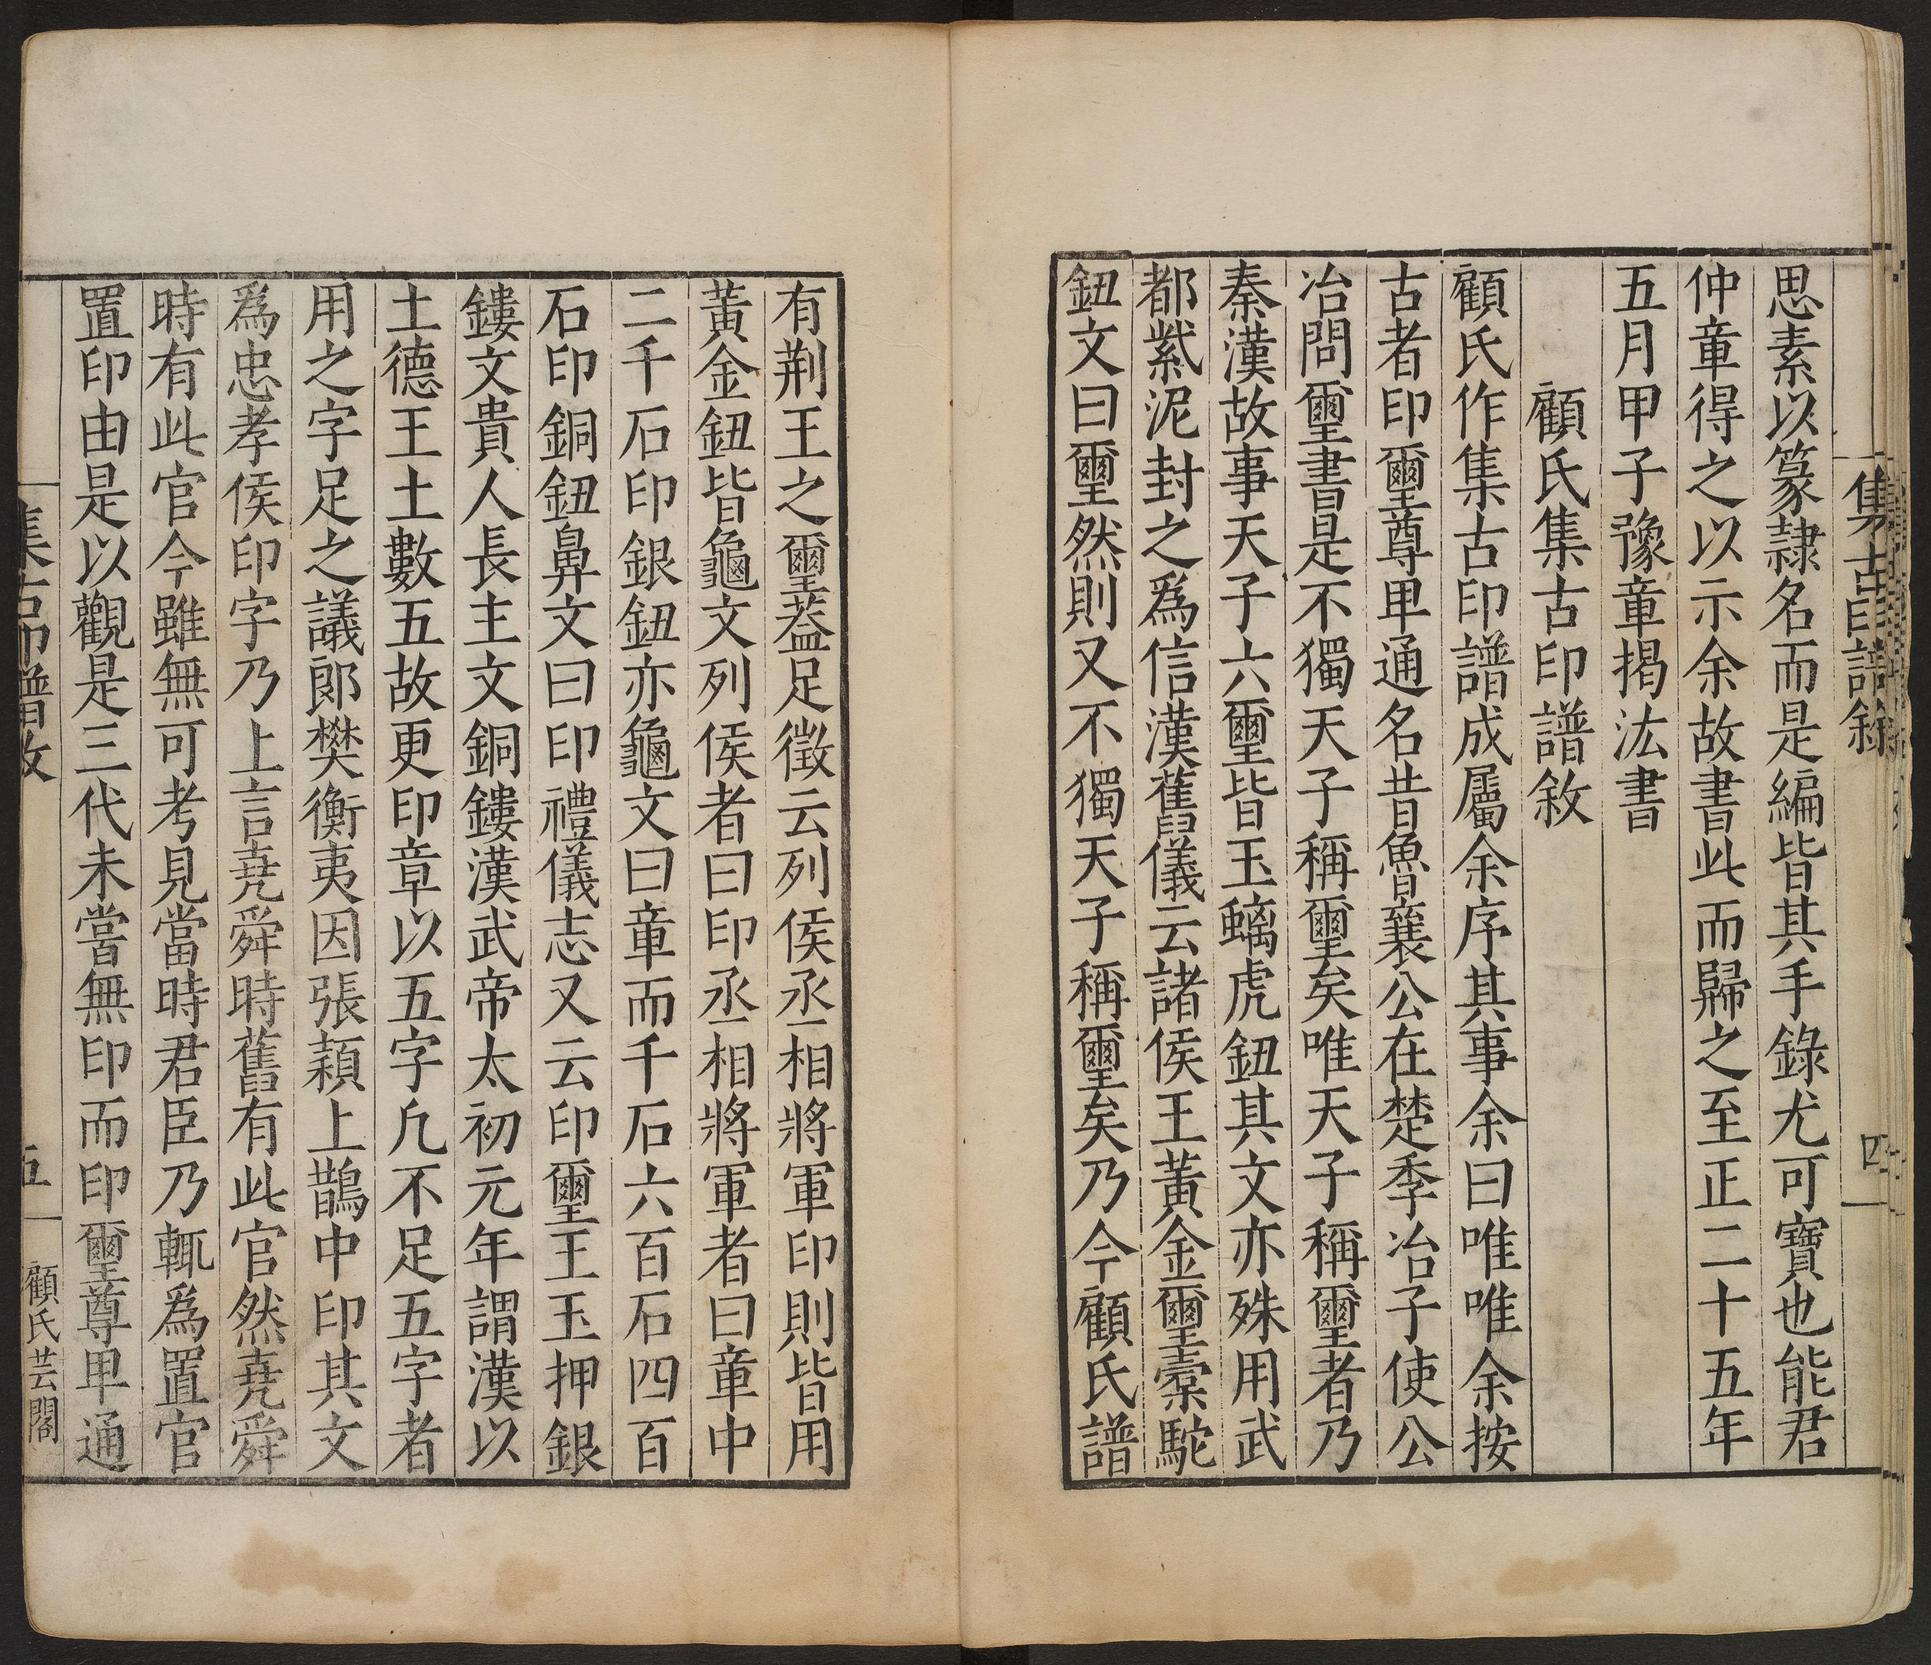 集古印譜敘
四
思素以篆隸名而是編皆其手錄尤可寶也能君
仲章得之以示余故書此而歸之至正二十五年
五月甲子豫章揭汯書
顧氏集古印譜敘
顧氏作集古印譜成屬余序其事余曰唯唯余按
古者印壐尊卑通名昔魯襄公在楚季冶子使公
冶問壐書是不獨天子稱壐矣唯天子稱壐者乃
秦漢故事天子六壐皆玉螭虎鈕其文亦殊用武
都紫泥封之為信漢舊儀云諸侯王黃金壐橐駝
鈕文曰壐然則又不獨天子稱壐矣乃今顧氏譜
有荆王之壐葢足徵云列侯丞相將軍印則皆用
黃金鈕皆龜文列侯者曰印丞相將軍者曰章中
二千石印銀鈕亦龜文曰章而千石六百石四百
石印銅鈕鼻文曰印禮儀志又云印壐王玉押銀
鏤文貴人長主文銅鏤漢武帝太初元年謂漢以
土德王土數五故更印章以五字凡不足五字者
用之字足之議郎樊衡夷因張顈上鵲中印其文
爲忠孝侯印字乃上言堯舜時舊有此官然堯舜
時有此官今雖無可考見當時君臣乃輒爲置官
置印由是以觀是三代未嘗無印而印壐尊卑通
集古印譜敘
五
顧氏芸閣